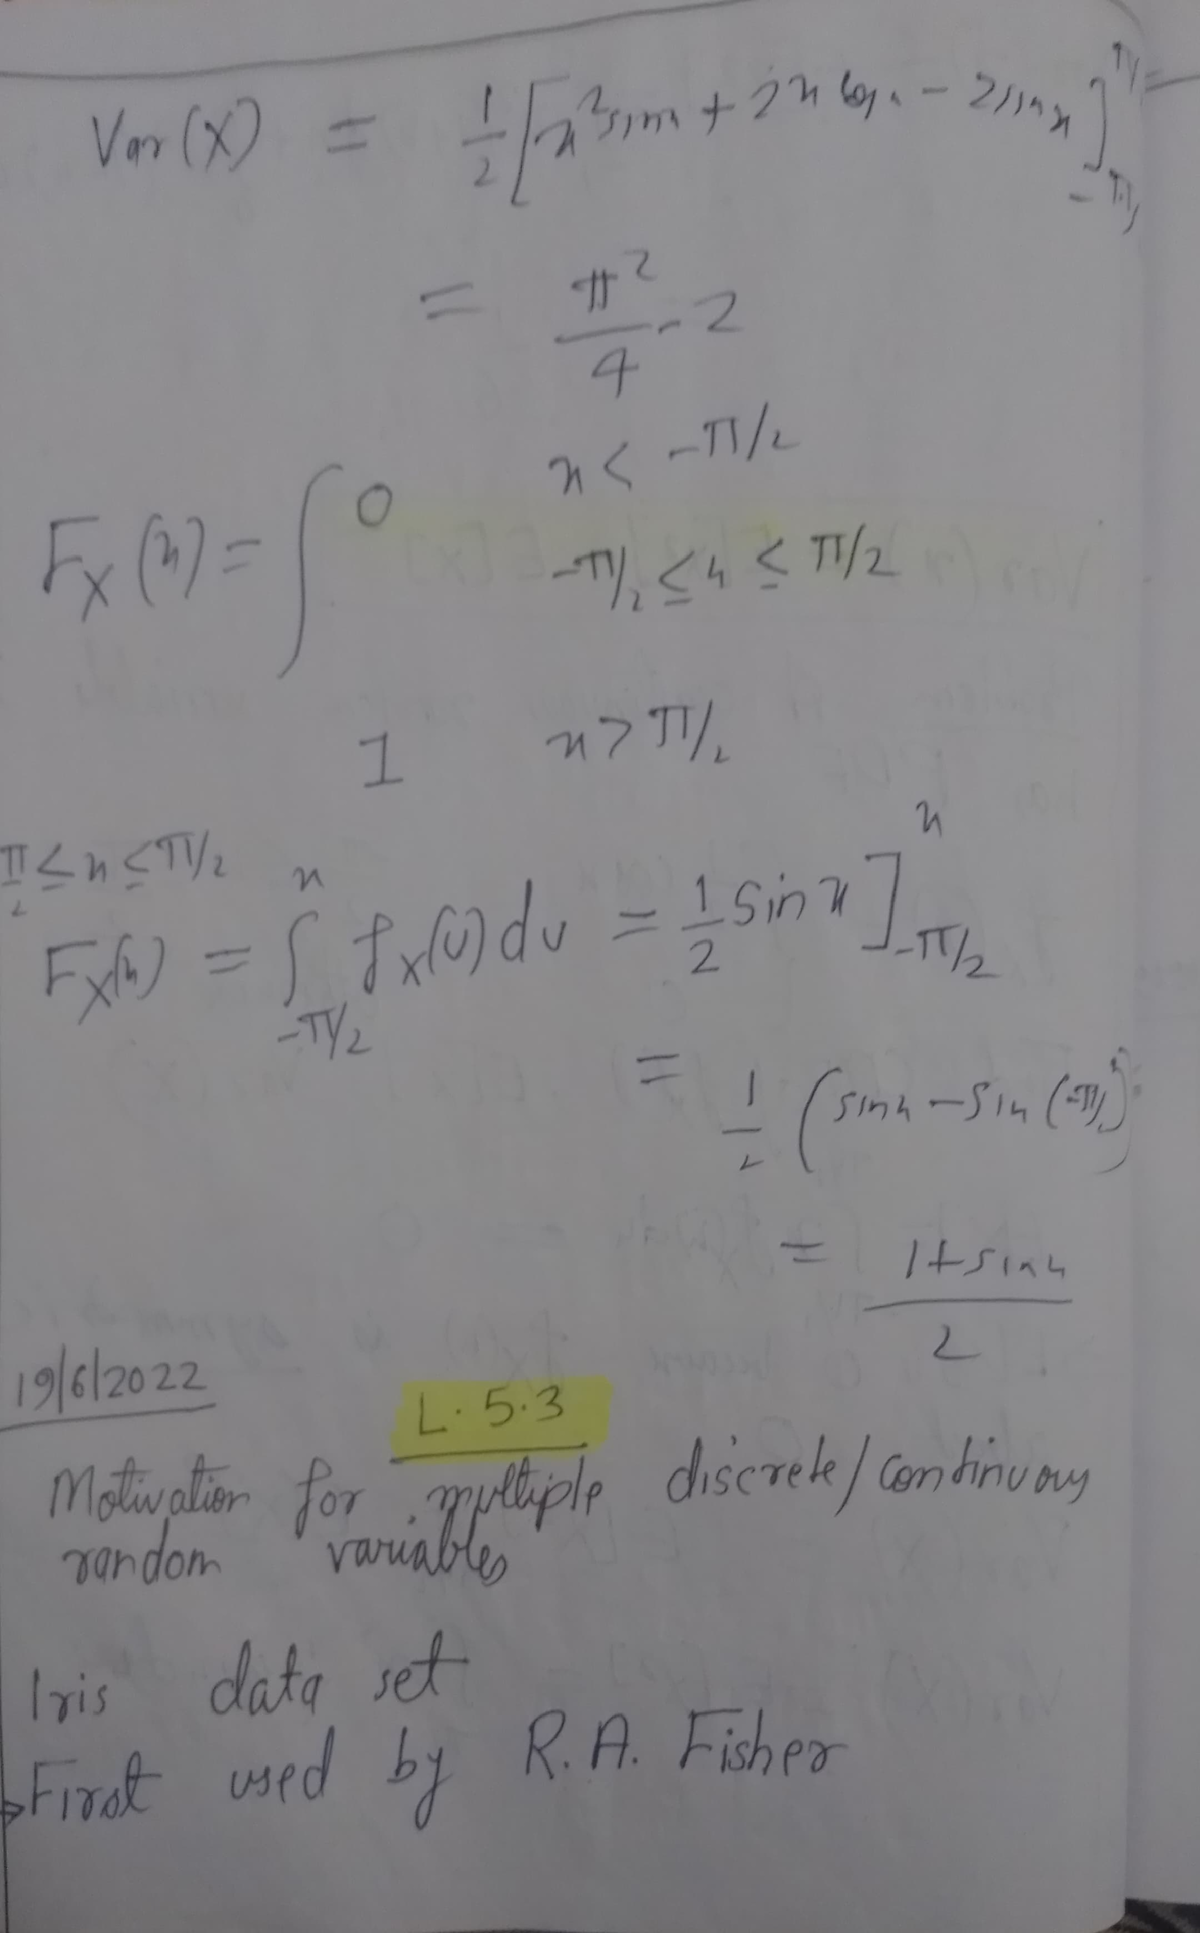 Var(X) = 1/2 [x² sin x + 2x cos x - 2 sin x] π/ -π/
= π²/4 - 2
F_X(x) = { 0 x < -π/2
-π/2 ≤ x ≤ π/2
1 x > π/2
π/2 ≤ x ≤ π/2
F_X(x) = ∫_{-π/2}^{x} f_X(u) du = 1/2 sin x ]_{-π/2}^{x}
= 1/2 (sin x - sin (-π/2))
= (1 + sin x)/2
19/6/2022
L. 5.3
Motivation for multiple discrete/continuous
random variables
Iris data set
First used by R.A. Fisher